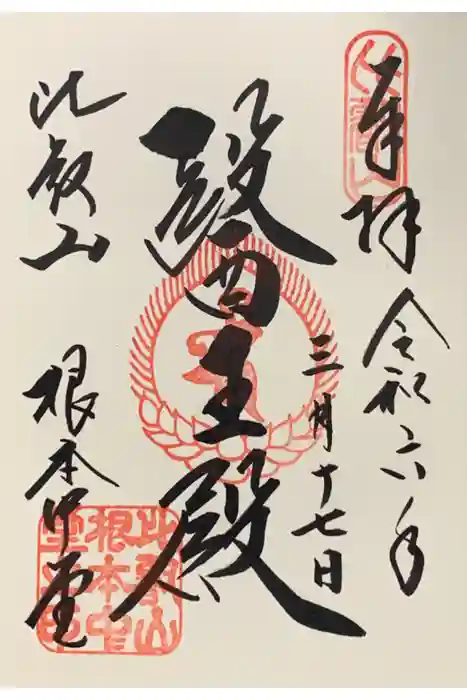 奉拝
令和六年
三月十七日
醫王殿
比叡山
根本中堂
比叡山
根本中
堂之印